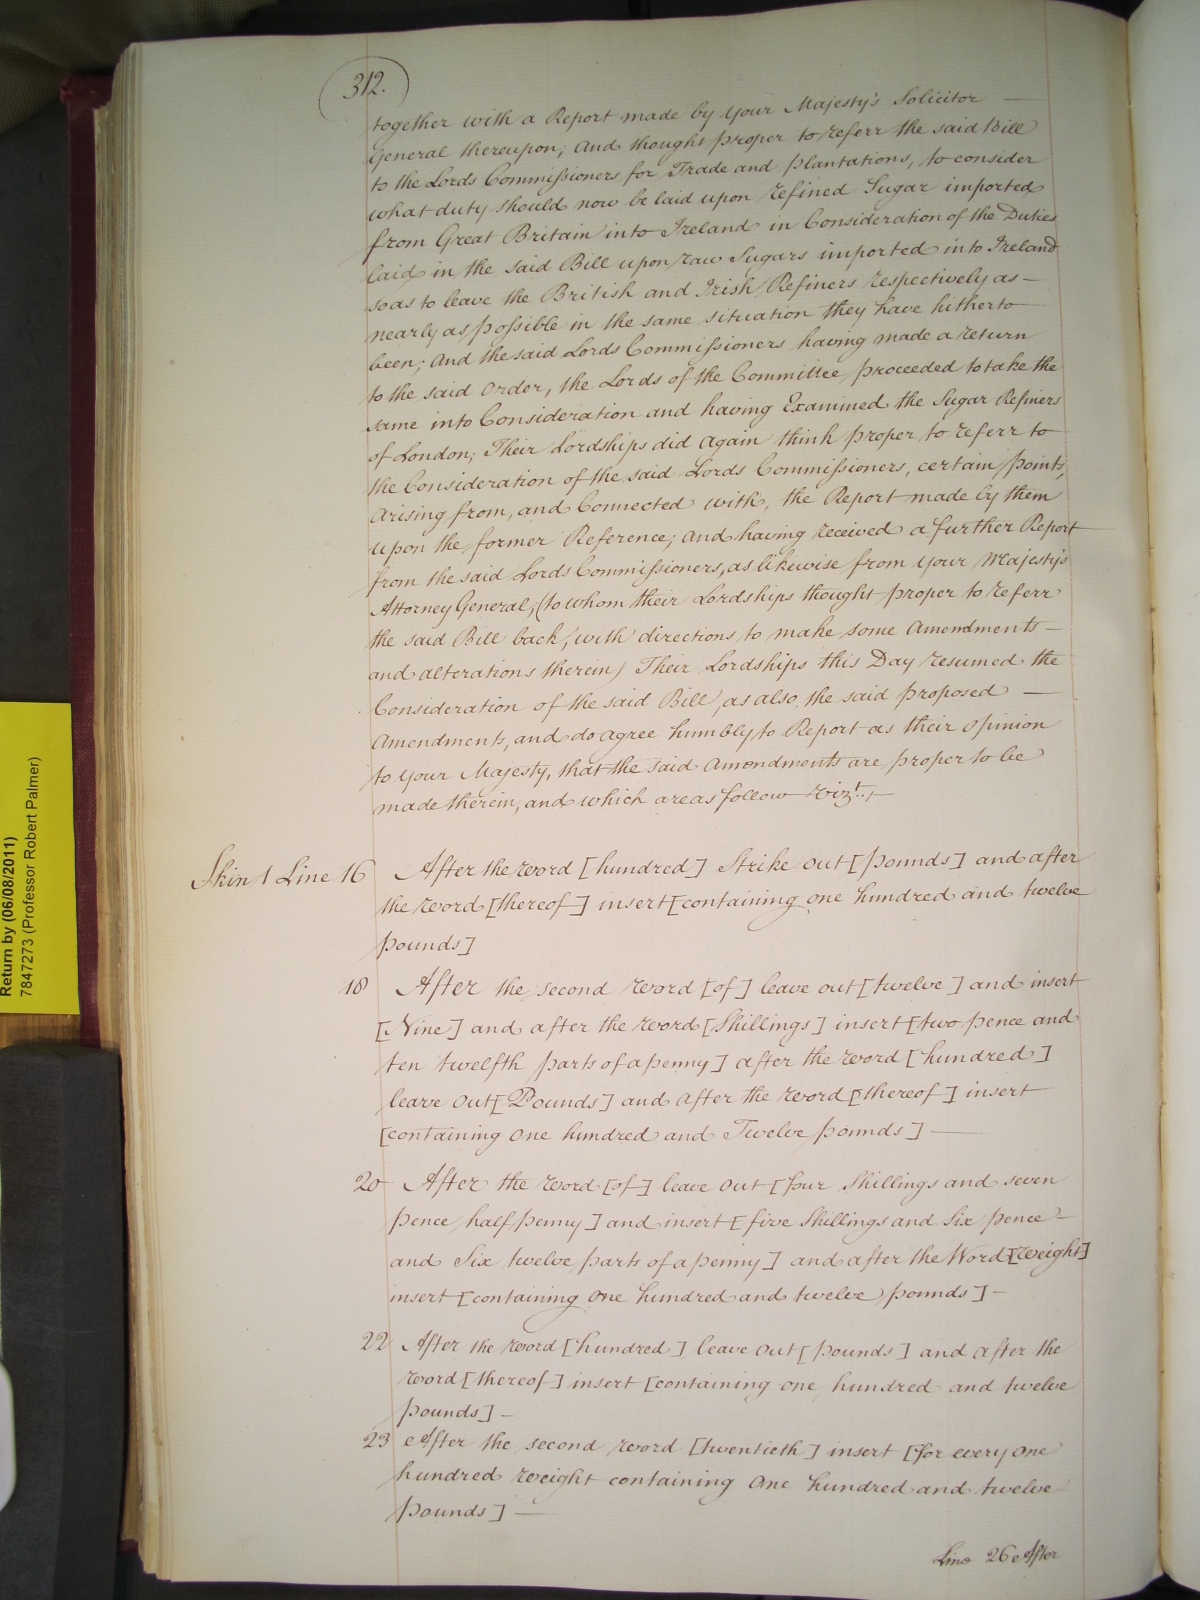 312.
together with a Report made by Your Majesty's Solicitor —
General thereupon; And thought proper to referr the said Bill
to the Lords Commissioners for Trade and Plantations, to consider
what duty should now be laid upon refined Sugar imported
from Great Britain into Ireland in Consideration of the Duties
laid in the said Bill upon raw Sugars imported into Ireland
so as to leave the British and Irish Refiners respectively as —
nearly as possible in the same situation they have hitherto
been; And the said Lords Commissioners having made a return
to the said Order, the Lords of the Committee proceeded to take the
same into Consideration and having Examined the Sugar Refiners
of London; Their Lordships did again think proper to referr to
the Consideration of the said Lords Commissioners, certain points,
Arising from, and Connected with, the Report made by them
upon the former Reference; And having received a further Report
from the said Lords Commissioners, as likewise from Your Majesty's
Attorney General, (to whom their Lordships thought proper to referr
the said Bill back, with directions to make some Amendments —
and alterations therein) Their Lordships this Day resumed the
Consideration of the said Bill, as also the said proposed —
Amendments, and do agree humbly to Report as their Opinion
to Your Majesty, that the said Amendments are proper to be
made therein, and which are as follow vizt. —
Skin 1 Line 16 After the word [hundred] Strike out [pounds] and after
the word [thereof] insert [containing one hundred and twelve
pounds]
18 After the second word [of] leave out [twelve] and insert
[Nine] and after the word [Shillings] insert [two pence and
ten twelfth parts of a penny] after the word [hundred]
leave out [Pounds] and After the word [thereof] insert
[containing One hundred and Twelve pounds] —
20 After the word [of] leave out [four Shillings and seven
pence half penny] and insert [five Shillings and Six pence —
and Six twelve parts of a penny] and after the Word [weight]
insert [containing One hundred and twelve pounds] —
22 After the word [hundred] leave out [pounds] and after the
word [thereof] insert [containing one hundred and twelve
pounds] —
23 After the second word [twentieth] insert [for every one
hundred weight containing One hundred and twelve
pounds] —
Line 26 After
Return by (06/08/2011)
7847273 (Professor Robert Palmer)